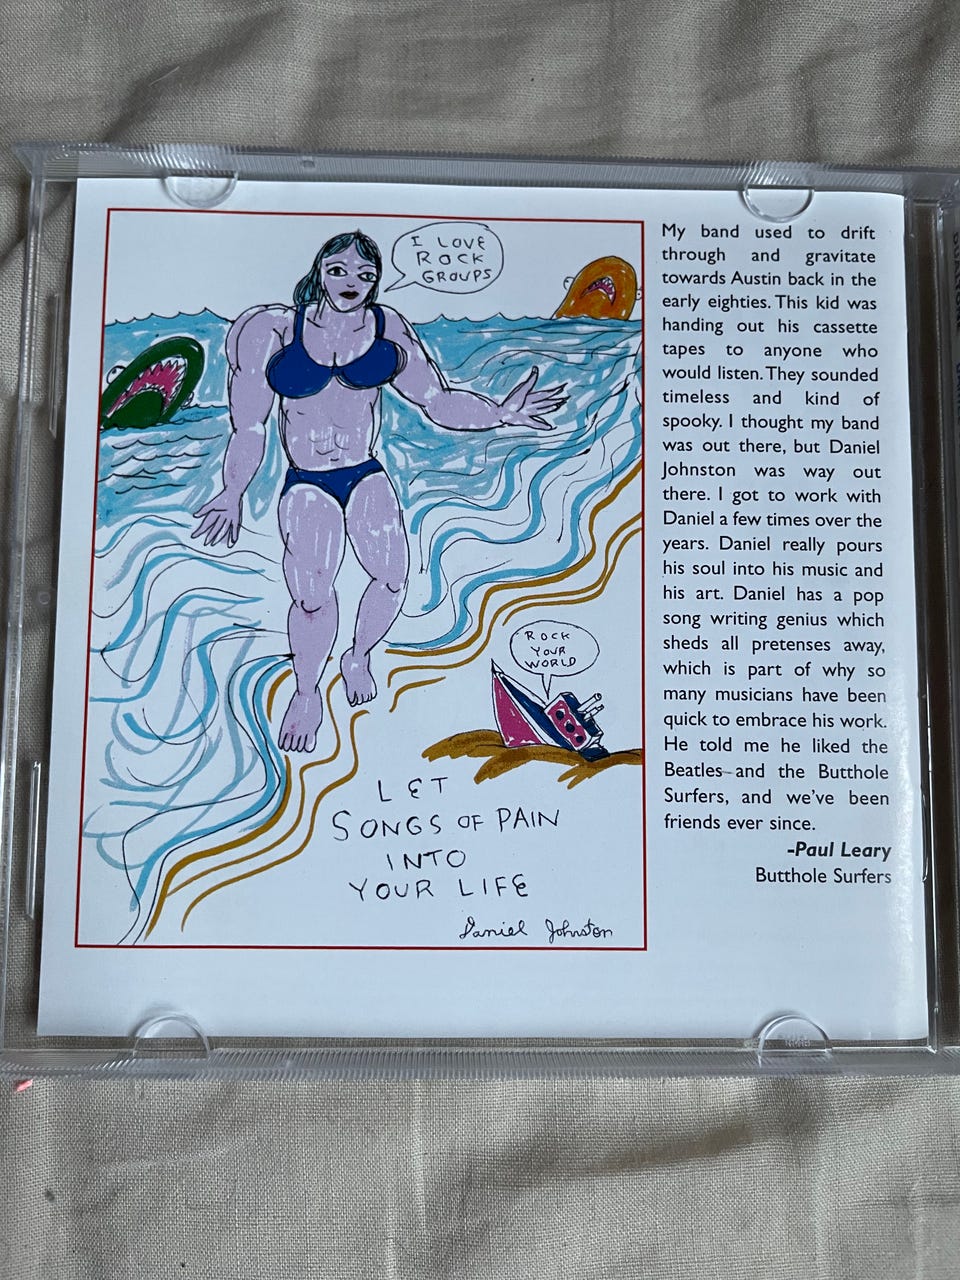 I LOVE
ROCK
GROUPS
ROCK
YOUR
WORLD
LET
SONGS OF PAIN
INTO
YOUR LIFE
Daniel Johnston
My band used to drift
through and gravitate
towards Austin back in the
early eighties. This kid was
handing out his cassette
tapes to anyone who
would listen. They sounded
timeless and kind of
spooky. I thought my band
was out there, but Daniel
Johnston was way out
there. I got to work with
Daniel a few times over the
years. Daniel really pours
his soul into his music and
his art. Daniel has a pop
song writing genius which
sheds all pretenses away,
which is part of why so
many musicians have been
quick to embrace his work.
He told me he liked the
Beatles and the Butthole
Surfers, and we've been
friends ever since.
-Paul Leary
Butthole Surfers